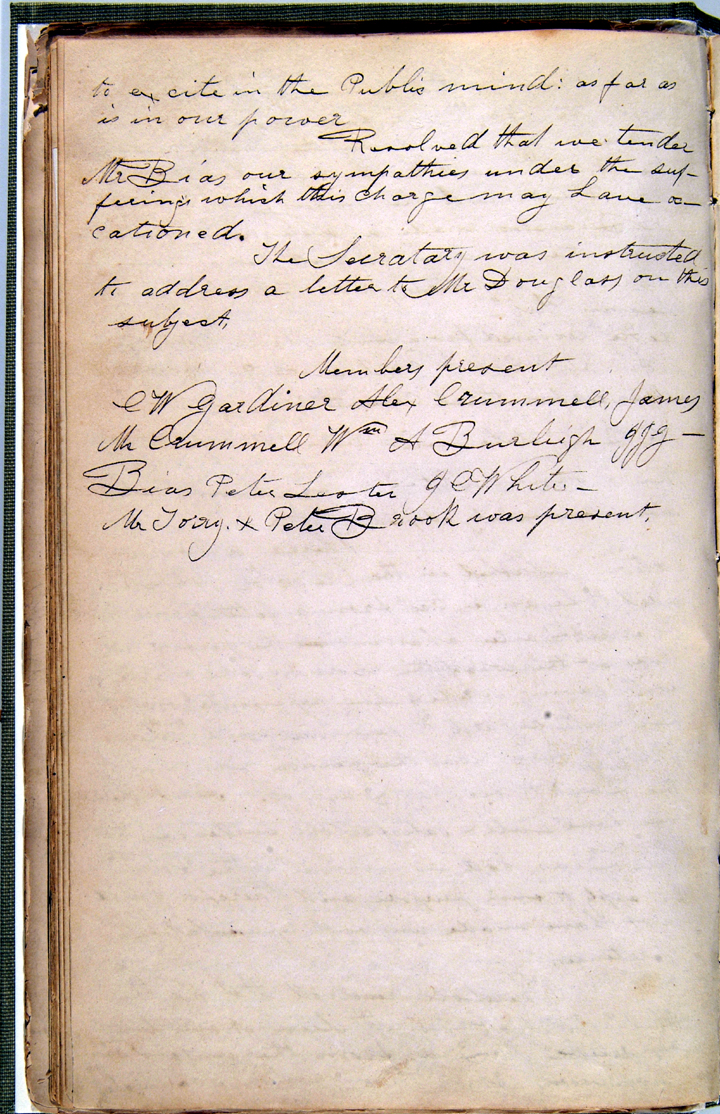 to excite in the Public mind: as far as
is in our power
Resolved that we tender
Mr Bias our sympathies under the suf-
ferings which this charge may have oc-
cationed.
The Secratary was instructed
to address a letter to Mr Douglass on this
subject,
Members present
C W Gardiner Alex Crummell, James
Mc Crummell Wm A Burleigh J J G -
Bias Peter Lester J C White -
Mr Torry. & Peter Brook was present.